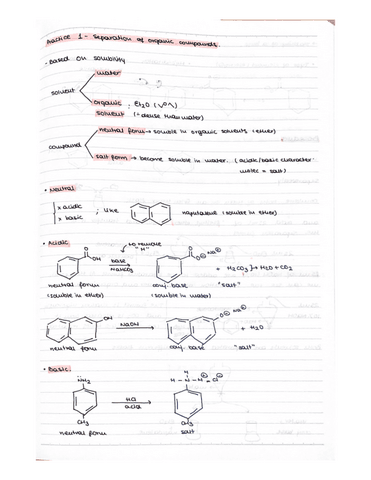 Practice 1 - Separation of organic compounds.
• Based on solubility
water
solvent
organic solvent : Et2O
(- dense than water)
neutral form → soluble in organic solvents (ether)
compound
salt form → become soluble in water. (acidic/basic character
= salt)
• Neutral
x acidic
x basic ; like
naphtalene (soluble in ether)
• Acidic
to remove "H"
OH
base
NaHCO3
O⊖ Na⊕
+ H2CO3 → H2O + CO2
neutral form
conj. base "salt"
(soluble in ether)
(soluble in water)
OH
NaOH
O⊖ Na⊕
+ H2O
neutral form
conj. base
"salt"
• Basic
NH2
HCl
acid
H - N - H
H
Cl⊖
CH3
CH3
neutral form
salt